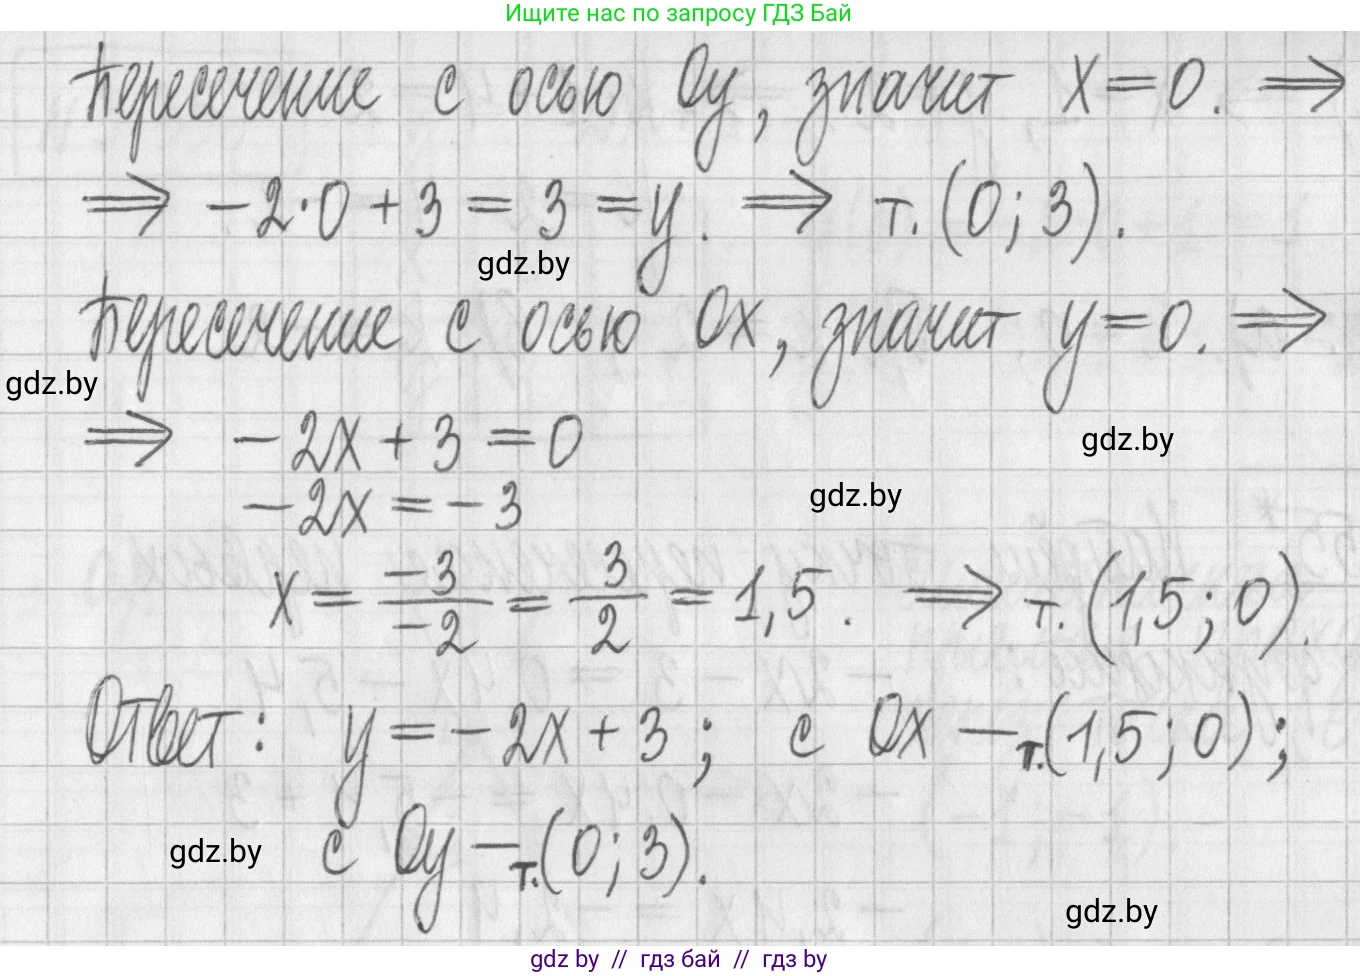 Ищите нас по запросу ГДЗ Бай
Пересечение с осью Oy, значит x=0. ⟹
⟹ -2·0+3=3=y. ⟹ т.(0;3).
gdz.by
Пересечение с осью Ox, значит y=0. ⟹
gdz.by
⟹ -2x+3=0
gdz.by
-2x=-3
gdz.by
x = -3/-2 = 3/2 = 1,5. ⟹ т.(1,5;0).
Ответ: y=-2x+3; с Ox – т.(1,5;0);
с Oy – т.(0;3).
gdz.by
gdz.by
gdz by // гдз бай // гдз by